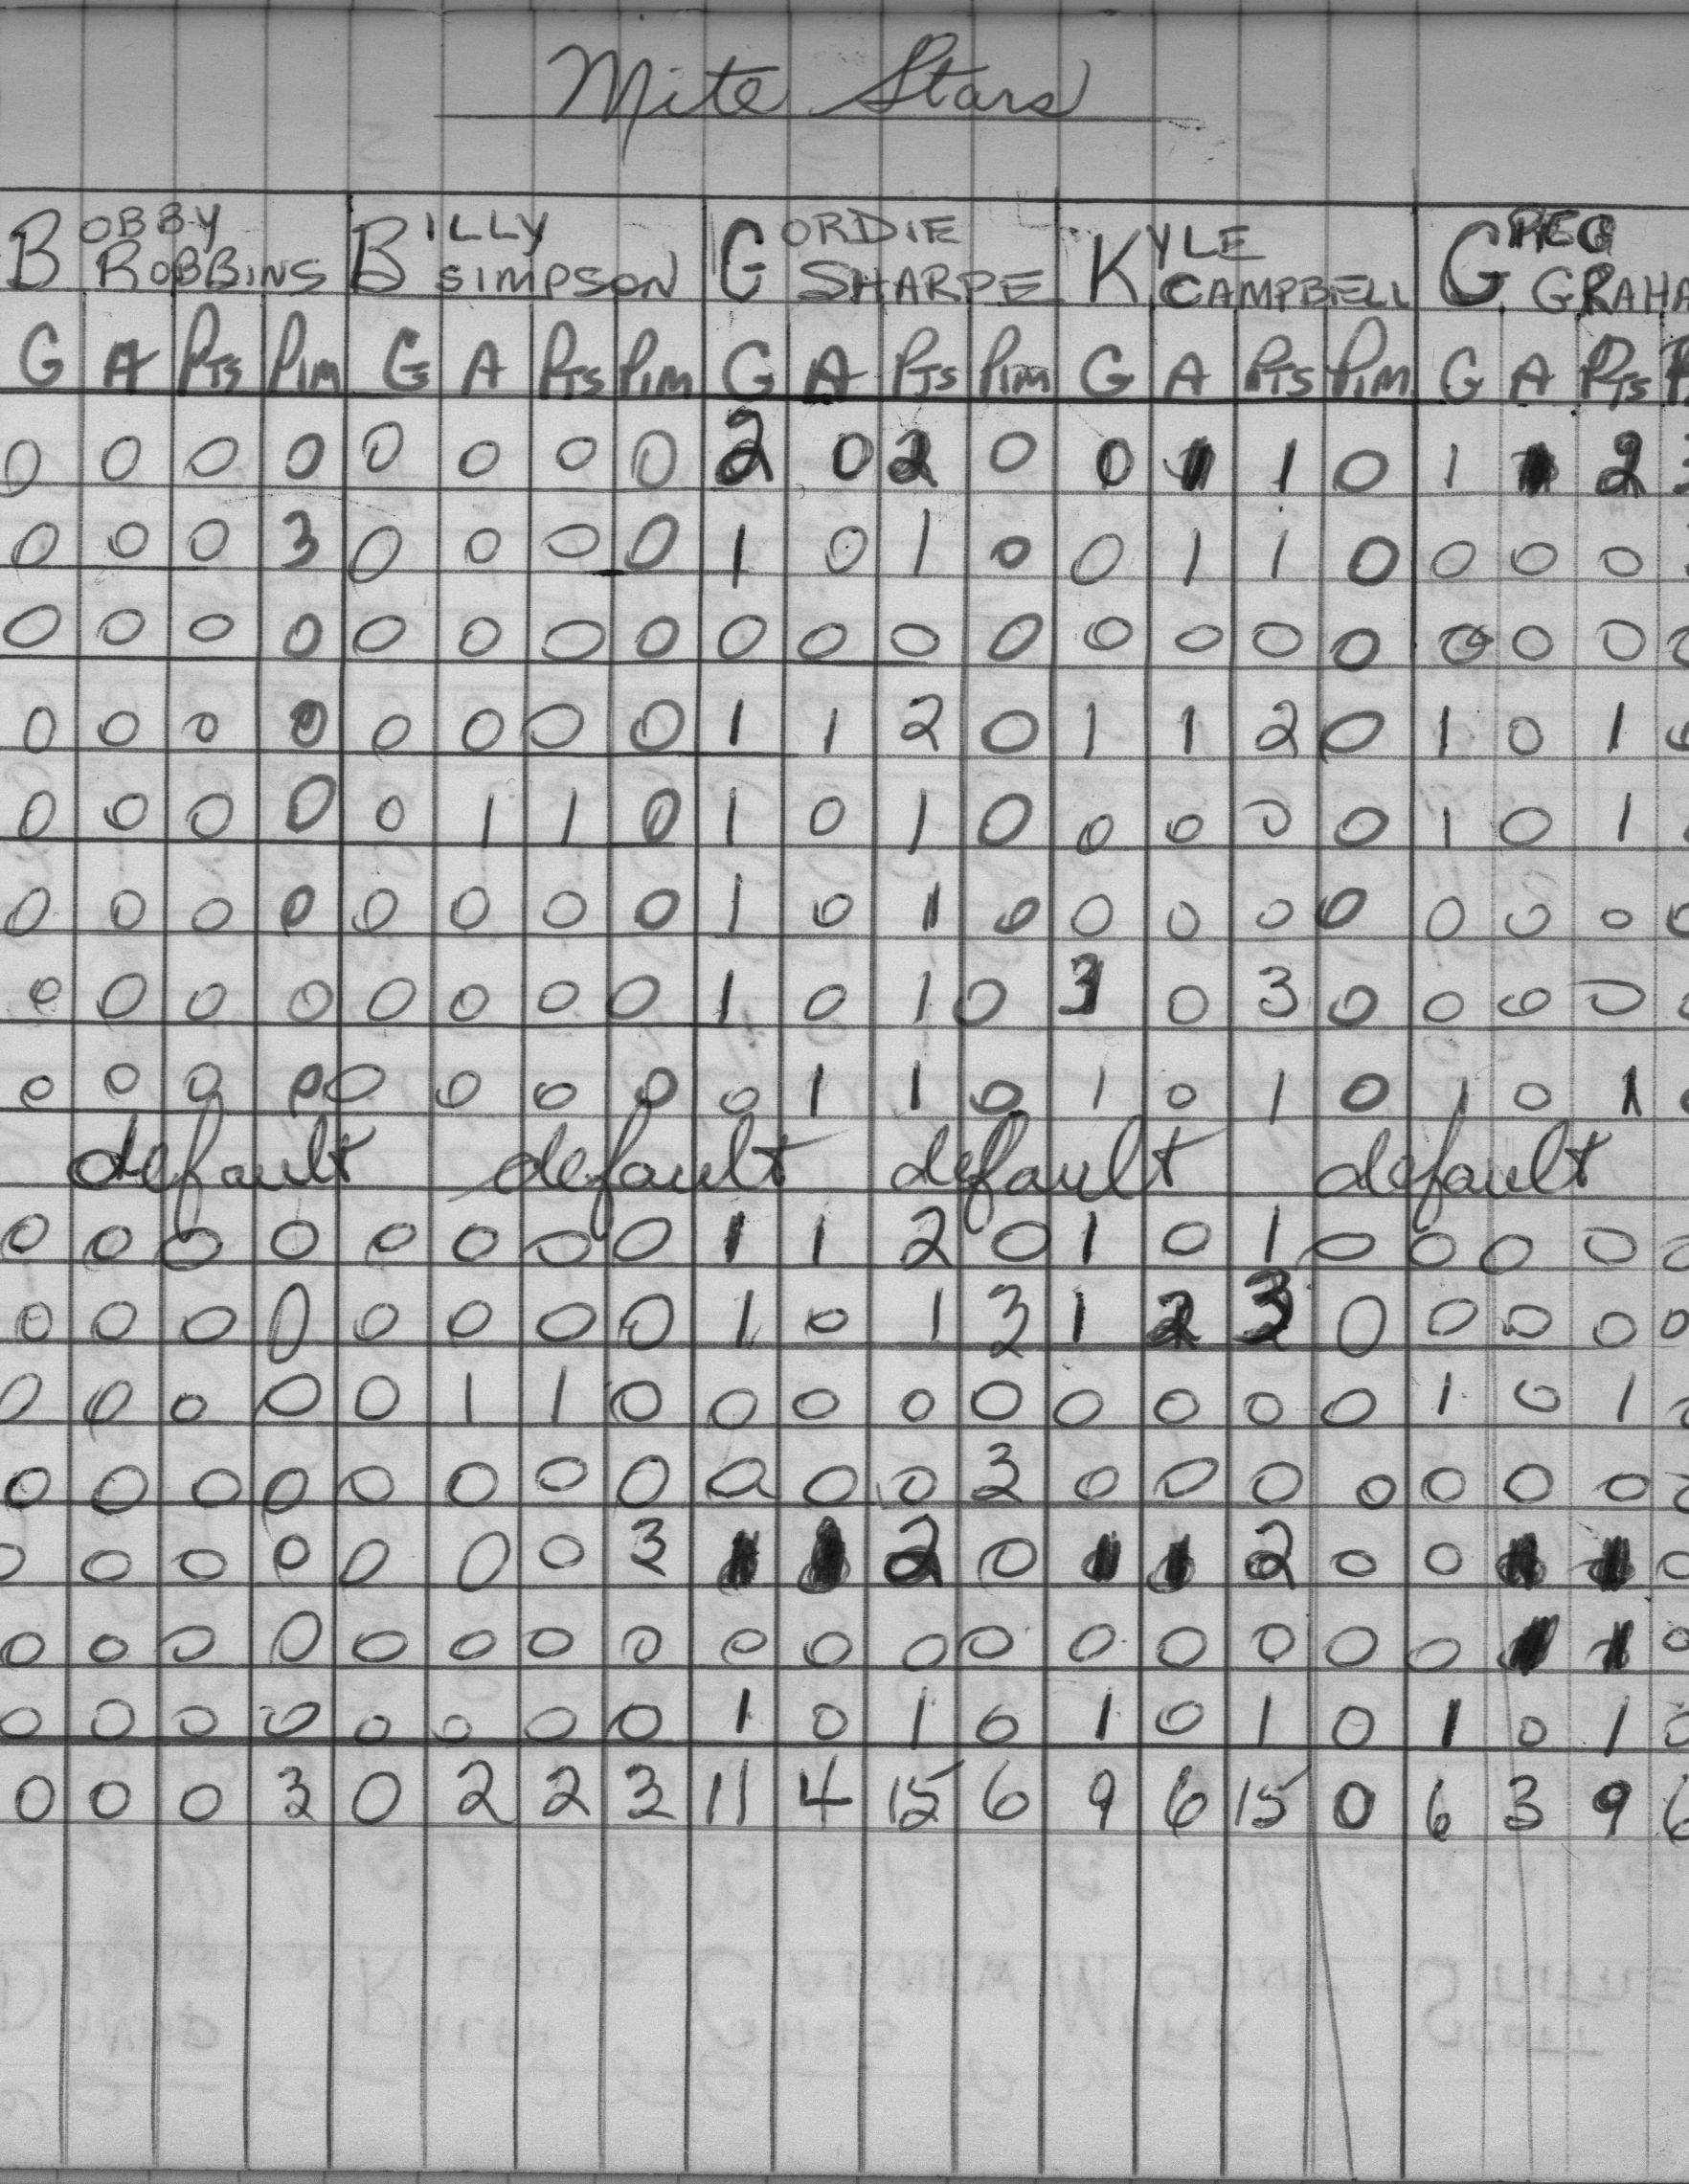 Mite Stars
BOBBY BILLY GORDIE KYLE GREG
ROBBINS SIMPSON SHARPE CAMPBELL GRAHA
G A PTS PIM G A PTS PIM G A PTS PIM G A PTS PIM G A PTS
0 0 0 0 0 0 0 0 2 0 2 0 0 1 1 0 1 1 2 3
0 0 0 3 0 0 0 0 1 0 1 0 0 1 1 0 0 0 0
0 0 0 0 0 0 0 0 0 0 0 0 0 0 0 0 0 0 0 0
0 0 0 0 0 0 0 0 1 1 2 0 1 1 2 0 1 0 1 0
0 0 0 0 0 1 1 0 1 0 1 0 0 0 0 0 1 0 1
0 0 0 0 0 0 0 0 1 0 1 0 0 0 0 0 0 0 0 0
0 0 0 0 0 0 0 0 1 0 1 0 3 0 3 0 0 0 0 0
0 0 0 0 0 0 0 0 0 1 1 0 1 0 1 0 1 0 1 0
default default default default
0 0 0 0 0 0 0 0 1 1 2 0 1 0 1 0 0 0 0 0
0 0 0 0 0 0 0 0 1 0 1 3 1 2 3 0 0 0 0 0
0 0 0 0 0 1 1 0 0 0 0 0 0 0 0 0 1 0 1
0 0 0 0 0 0 0 0 0 0 0 3 0 0 0 0 0 0 0
0 0 0 0 0 0 0 3 1 1 2 0 1 1 2 0 0 1 1 0
0 0 0 0 0 0 0 0 0 0 0 0 0 0 0 0 0 1 1 0
0 0 0 0 0 0 0 0 1 0 1 0 1 0 1 0 1 0 1 0
0 0 0 3 0 2 2 3 11 4 15 6 9 6 15 0 6 3 9 6